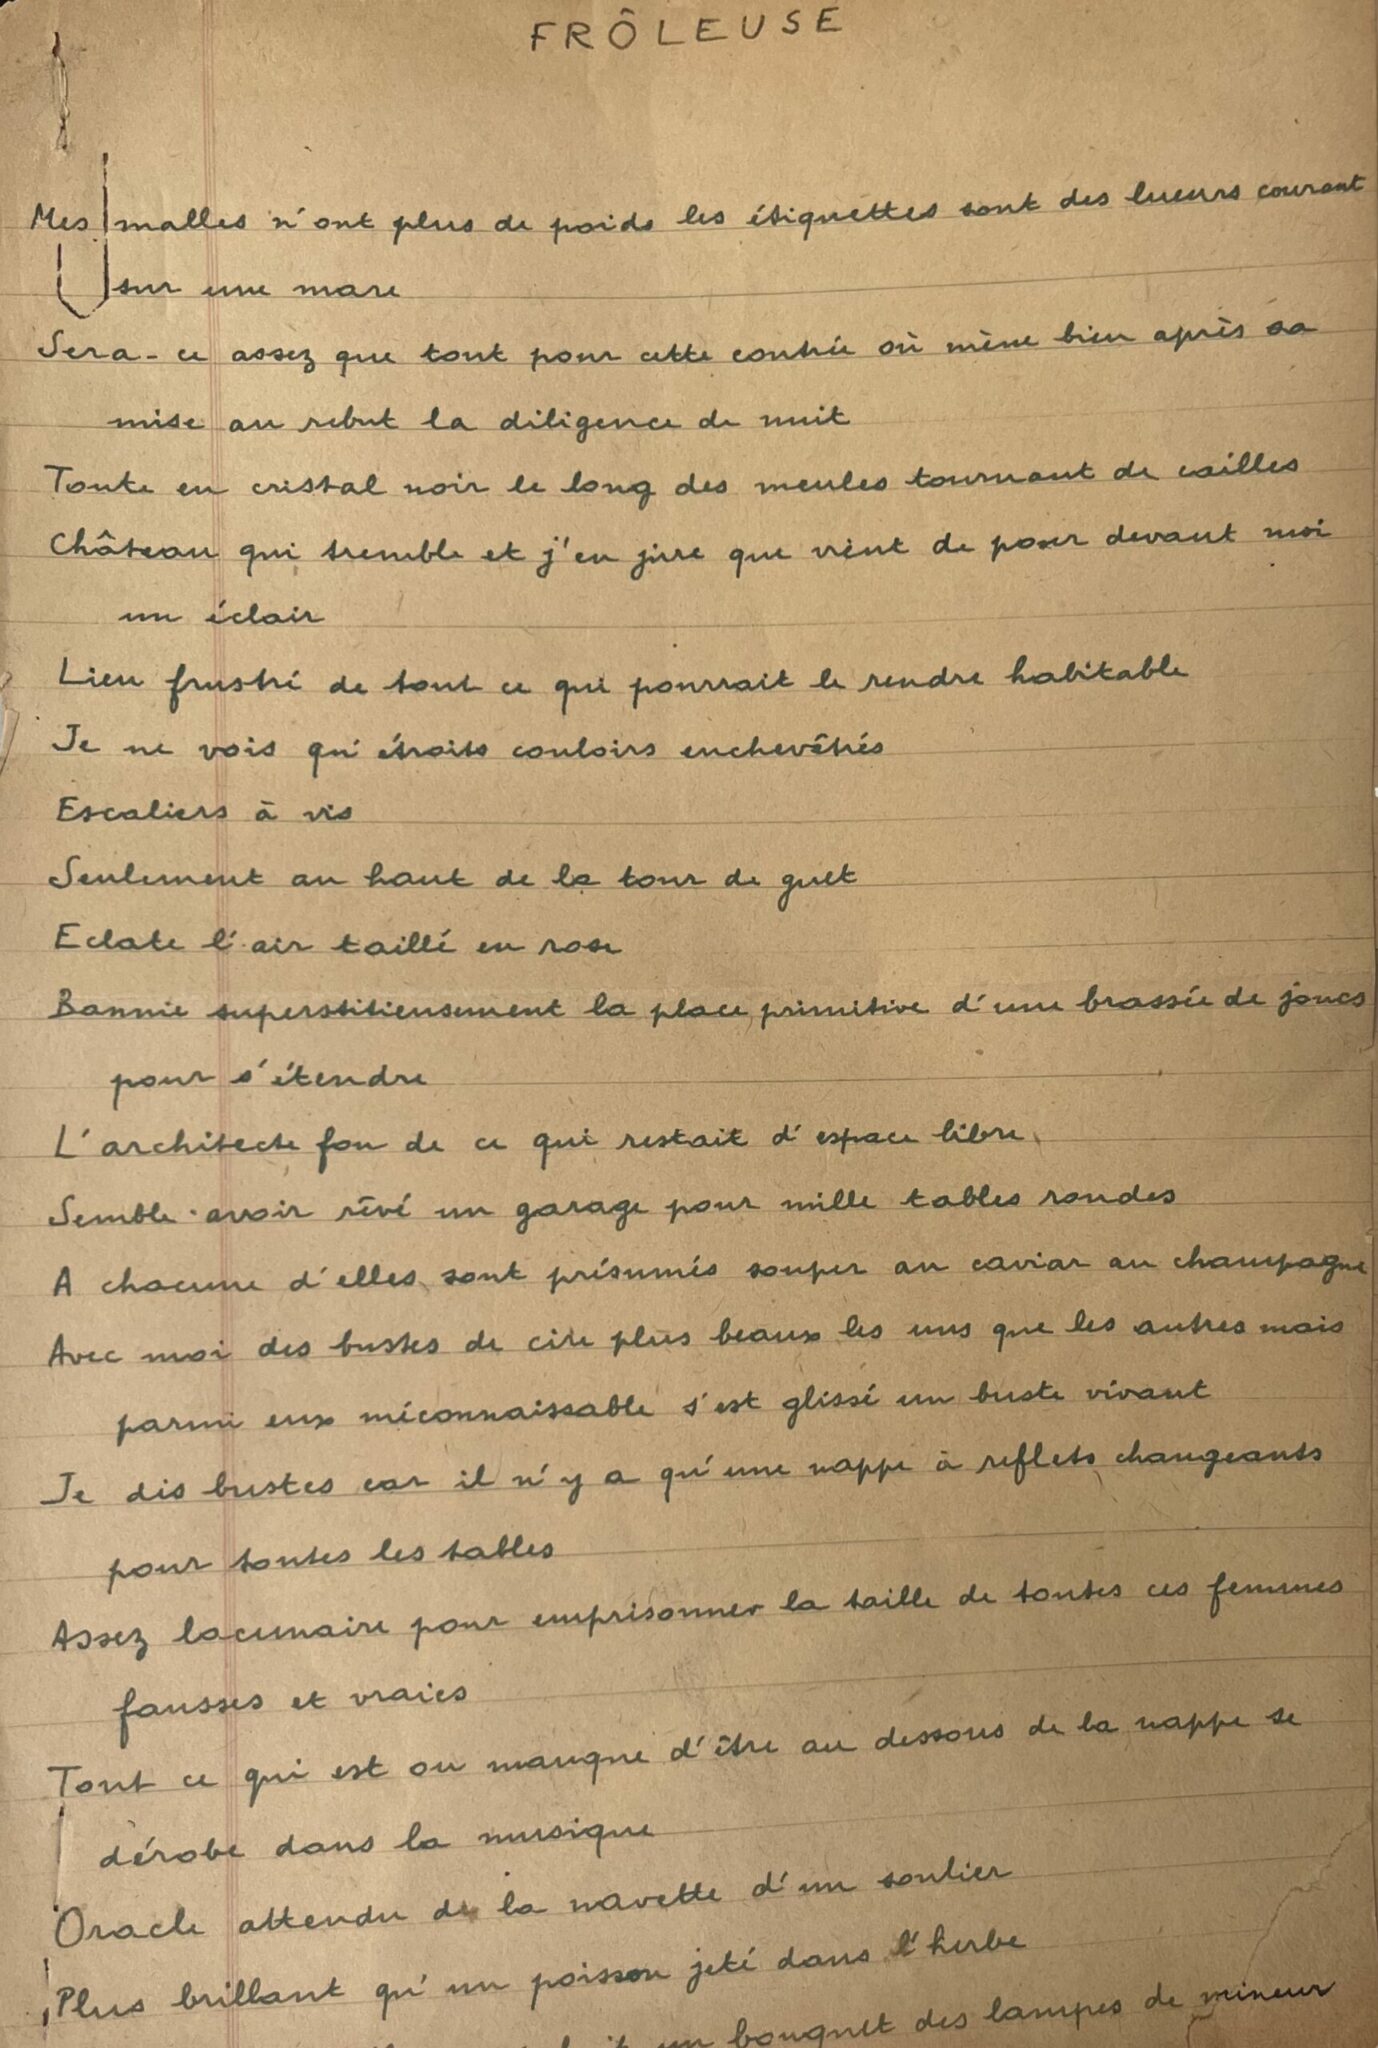 FRÔLEUSE
Mes malles n'ont plus de poids les étiquettes sont des lueurs courant
sur une mare
Sera-ce assez que tout pour cette contrée où mène bien après sa
mise au rebut la diligence de nuit
Toute en cristal noir le long des meules tournant de cailles
Château qui tremble et j'en jure que vient de poser devant moi
un éclair
Lieu frustré de tout ce qui pourrait le rendre habitable
Je ne vois qu'étroits couloirs enchevêtrés
Escaliers à vis
Seulement au haut de la tour de guet
Eclate l'air taillé en rose
Bannie superstitieusement la place primitive d'une brassée de joncs
pour s'étendre
L'architecte fou de ce qui restait d'espace libre
Semble avoir rêvé un garage pour mille tables rondes
A chacune d'elles sont présumés souper au caviar au champagne
Avec moi des bustes de cire plus beaux les uns que les autres mais
parmi eux méconnaissable s'est glissé un buste vivant
Je dis bustes car il n'y a qu'une nappe à reflets changeants
pour toutes les tables
Assez lacunaire pour emprisonner la taille de toutes ces femmes
fausses et vraies
Tout ce qui est ou manque d'être au dessous de la nappe se
dérobe dans la musique
Oracle attendu de la navette d'un soulier
Plus brillant qu'un poisson jeté dans l'herbe
un bouquet des lampes de mineur